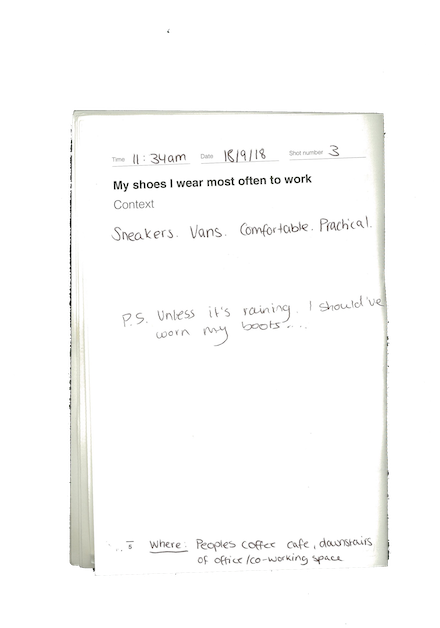 Time 11:34am Date 18/9/18 Shot number 3
My shoes I wear most often to work
Context
Sneakers. Vans. Comfortable. Practical.
P.S. Unless it's raining. I should've
worn my boots...
5 Where: Peoples Coffee cafe, downstairs
of office/co-working space